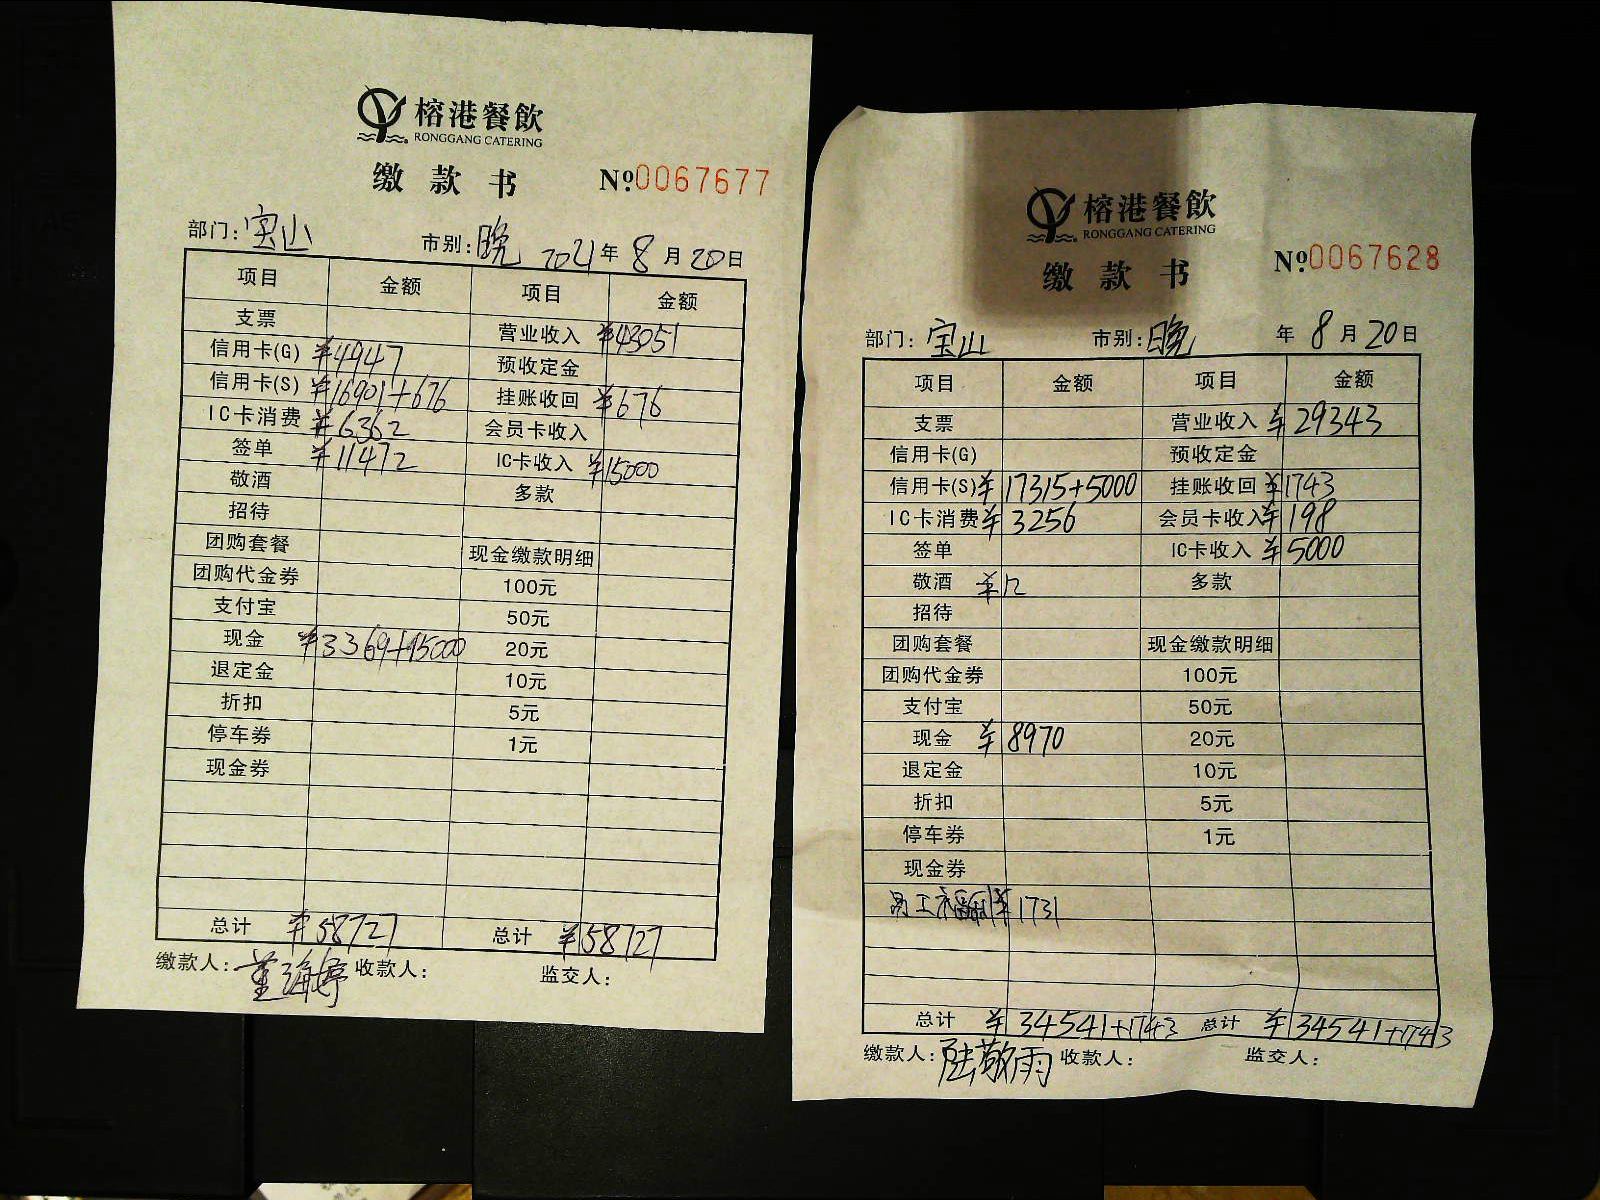 榕港餐飲
RONGGANG CATERING
缴款书 №0067677
部门:宝山 市别:晚 2021年8月20日
项目 金额 项目 金额
支票 营业收入 ¥43051
信用卡(G) ¥4947 预收定金
信用卡(S) ¥16901+676 挂账收回 ¥676
IC卡消费 ¥6362 会员卡收入
签单 ¥11472 IC卡收入 ¥15000
敬酒 多款
招待
团购套餐 现金缴款明细
团购代金券 100元
支付宝 50元
现金 ¥3369+15000 20元
退定金 10元
折扣 5元
停车券 1元
现金券
总计 ¥58727 总计 ¥58727
缴款人:董海婷 收款人: 监交人:
榕港餐飲
RONGGANG CATERING
缴款书 №0067628
部门:宝山 市别:晚 年8月20日
项目 金额 项目 金额
支票 营业收入 ¥29343
信用卡(G) 预收定金
信用卡(S) ¥17315+5000 挂账收回 ¥1743
IC卡消费 ¥3256 会员卡收入 ¥198
签单 IC卡收入 ¥5000
敬酒 ¥12 多款
招待
团购套餐 现金缴款明细
团购代金券 100元
支付宝 50元
现金 ¥8970 20元
退定金 10元
折扣 5元
停车券 1元
现金券
员工福利 ¥1731
总计 ¥34541+1743 总计 ¥34541+1743
缴款人:陆敬雨 收款人: 监交人: